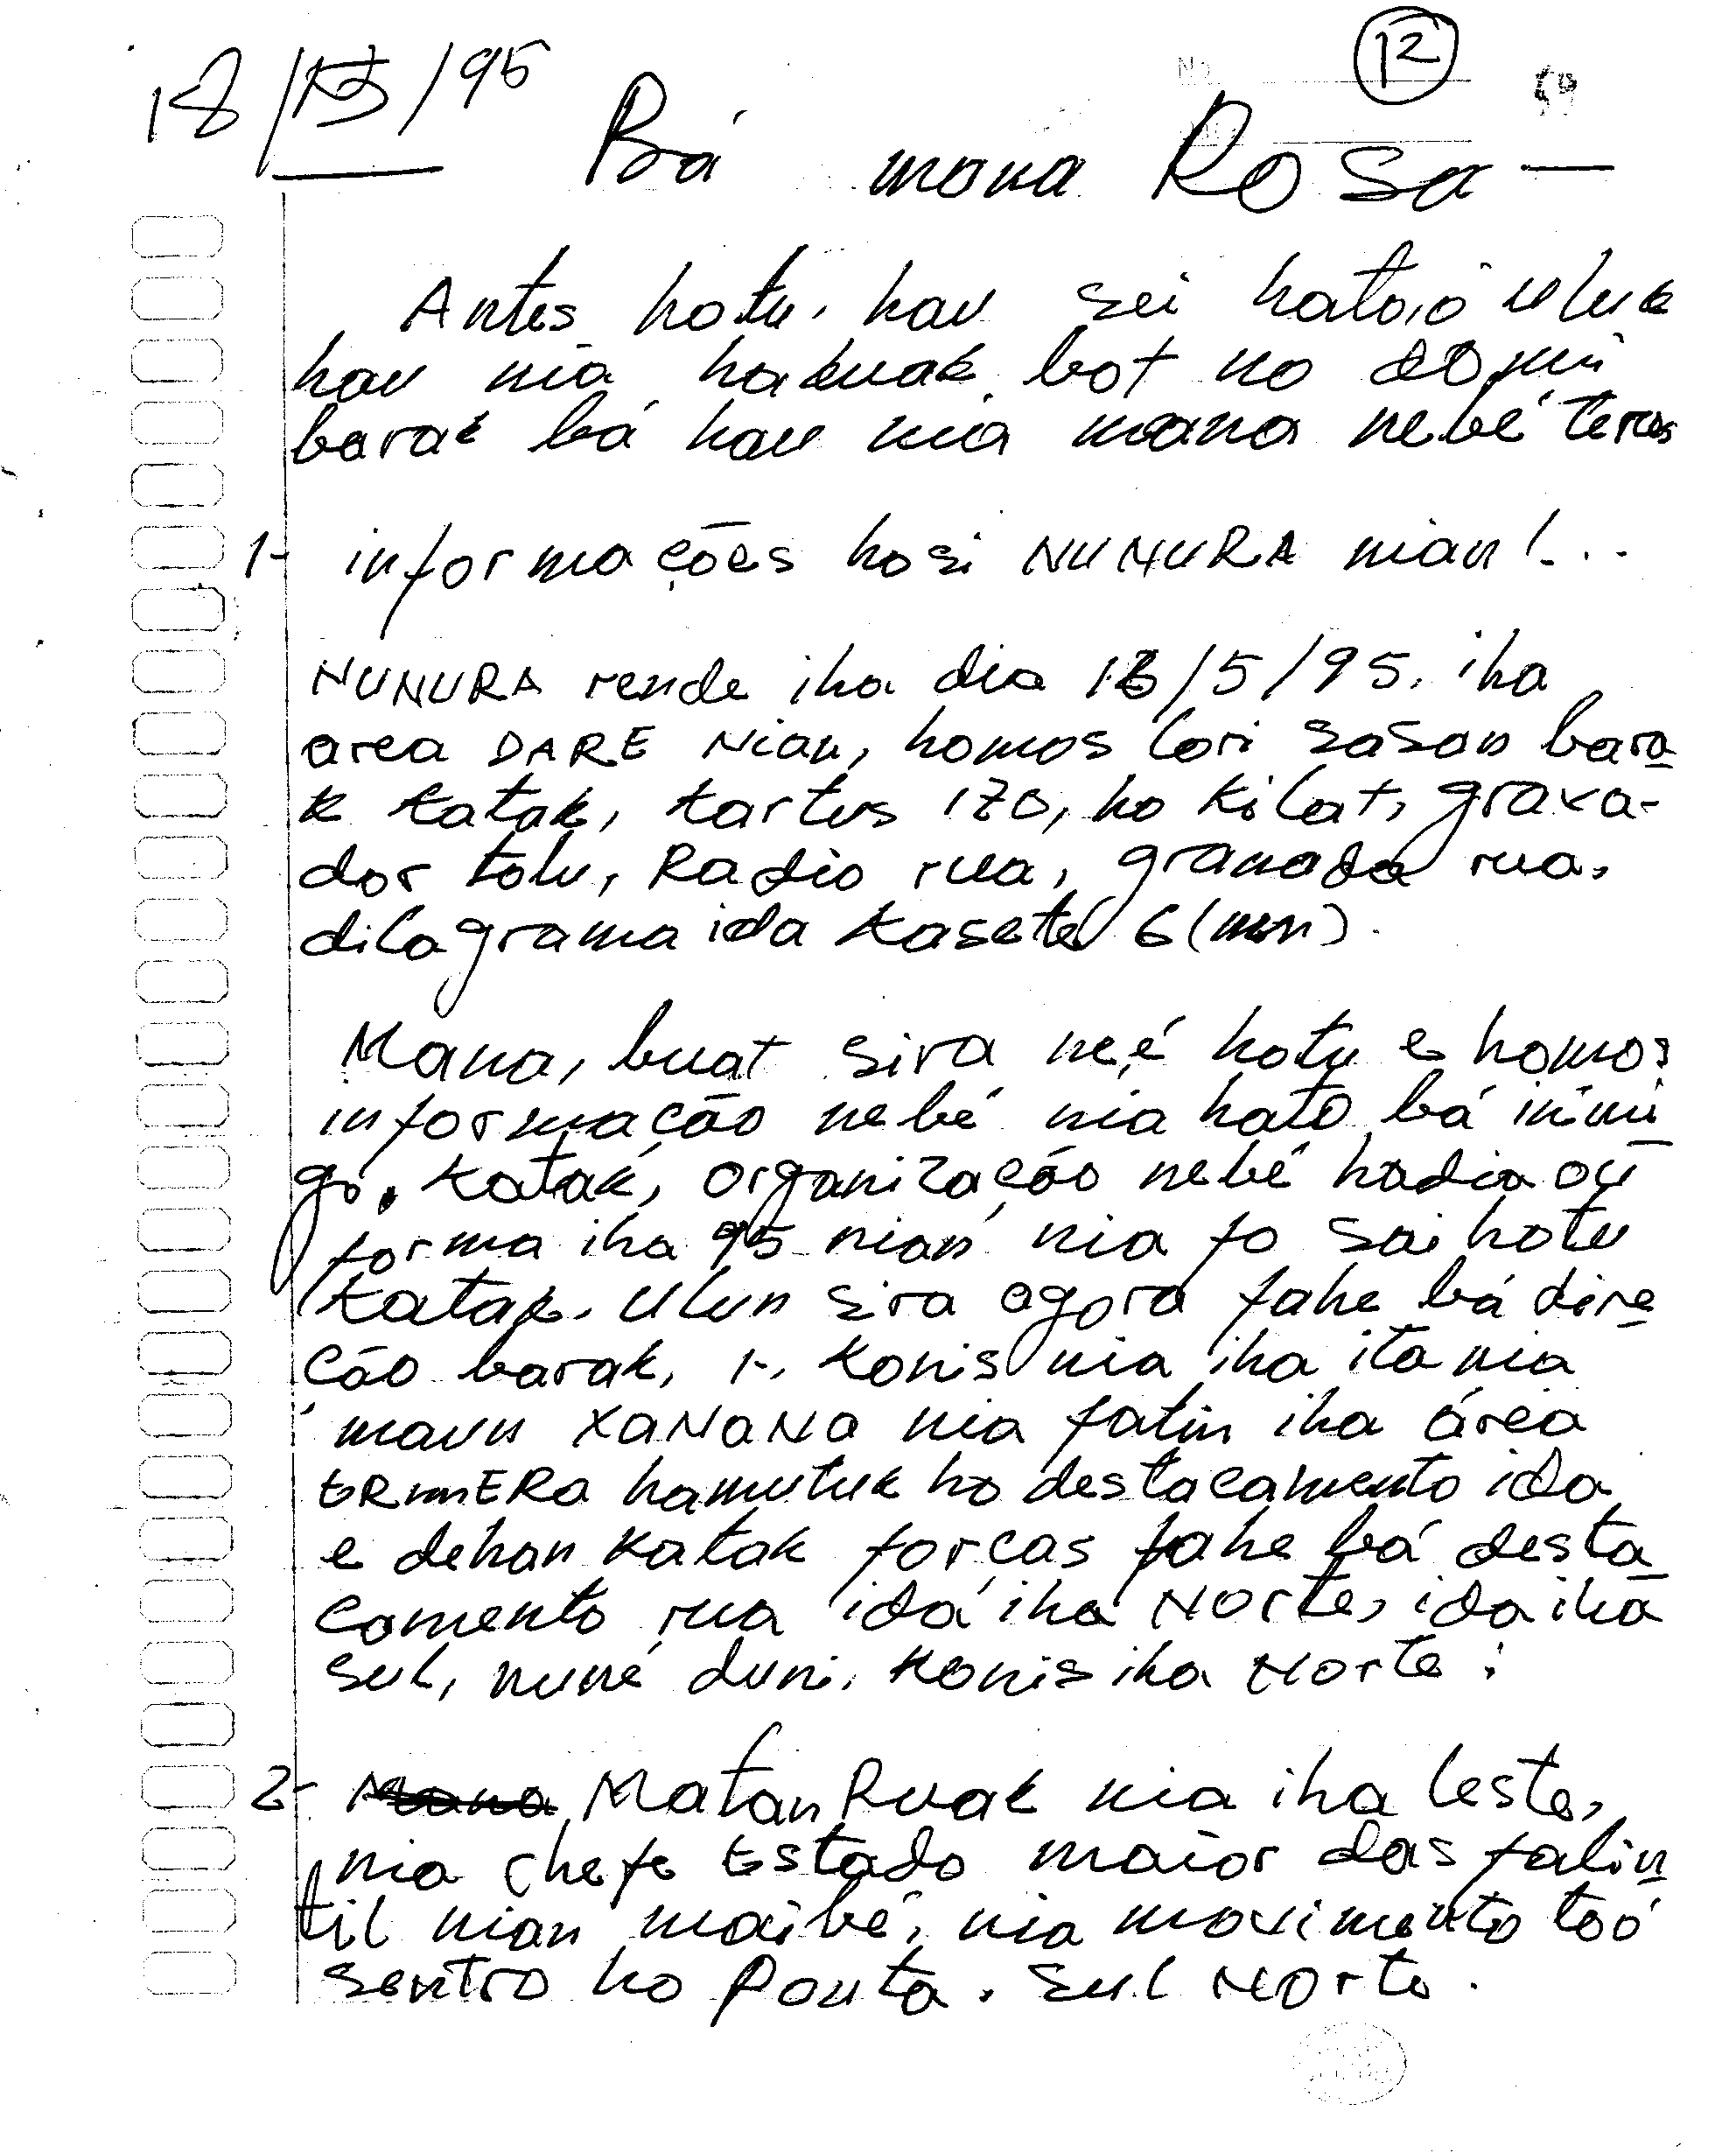 12
18/5/95
Bá mana Rosa —
Antes hotu, hau sei hato,o uluk
hau nia hakuak bot no domi
barak bá hau nia mana nebé teras
1- informações hosi NUNURA nian!...
NUNURA rende iha dia 16/5/95, iha
area DARE Nian, homos lori sasan bara
k katak, kartus 170, ho kilat, grava-
dor tolu, Radio rua, granada rua,
dilagrama ida kasete 6 (mm).
Mana, buat sira ne,é hotu e homos
informação nebé nia hato bá inimi
go, katak, organização nebé hadia ou
forma iha 95 nian nia fo sai hotu
katak. Ulun sira agora fahe bá dire
cáo barak, 1-, Konis nia iha ita nia
maun XANANA nia fatin iha área
ERmERa hamutuk ho destacamento ida
e dehan katak forças fahe bá desta
camento rua ida iha Norte, ida iha
sul, nuné duni, Konis iha Norte:
2- Matan Ruak nia iha leste,
nia chefe Estado maior das falin
til nian maibé, nia movimento too
sentro ho Ponta. sul Norte.